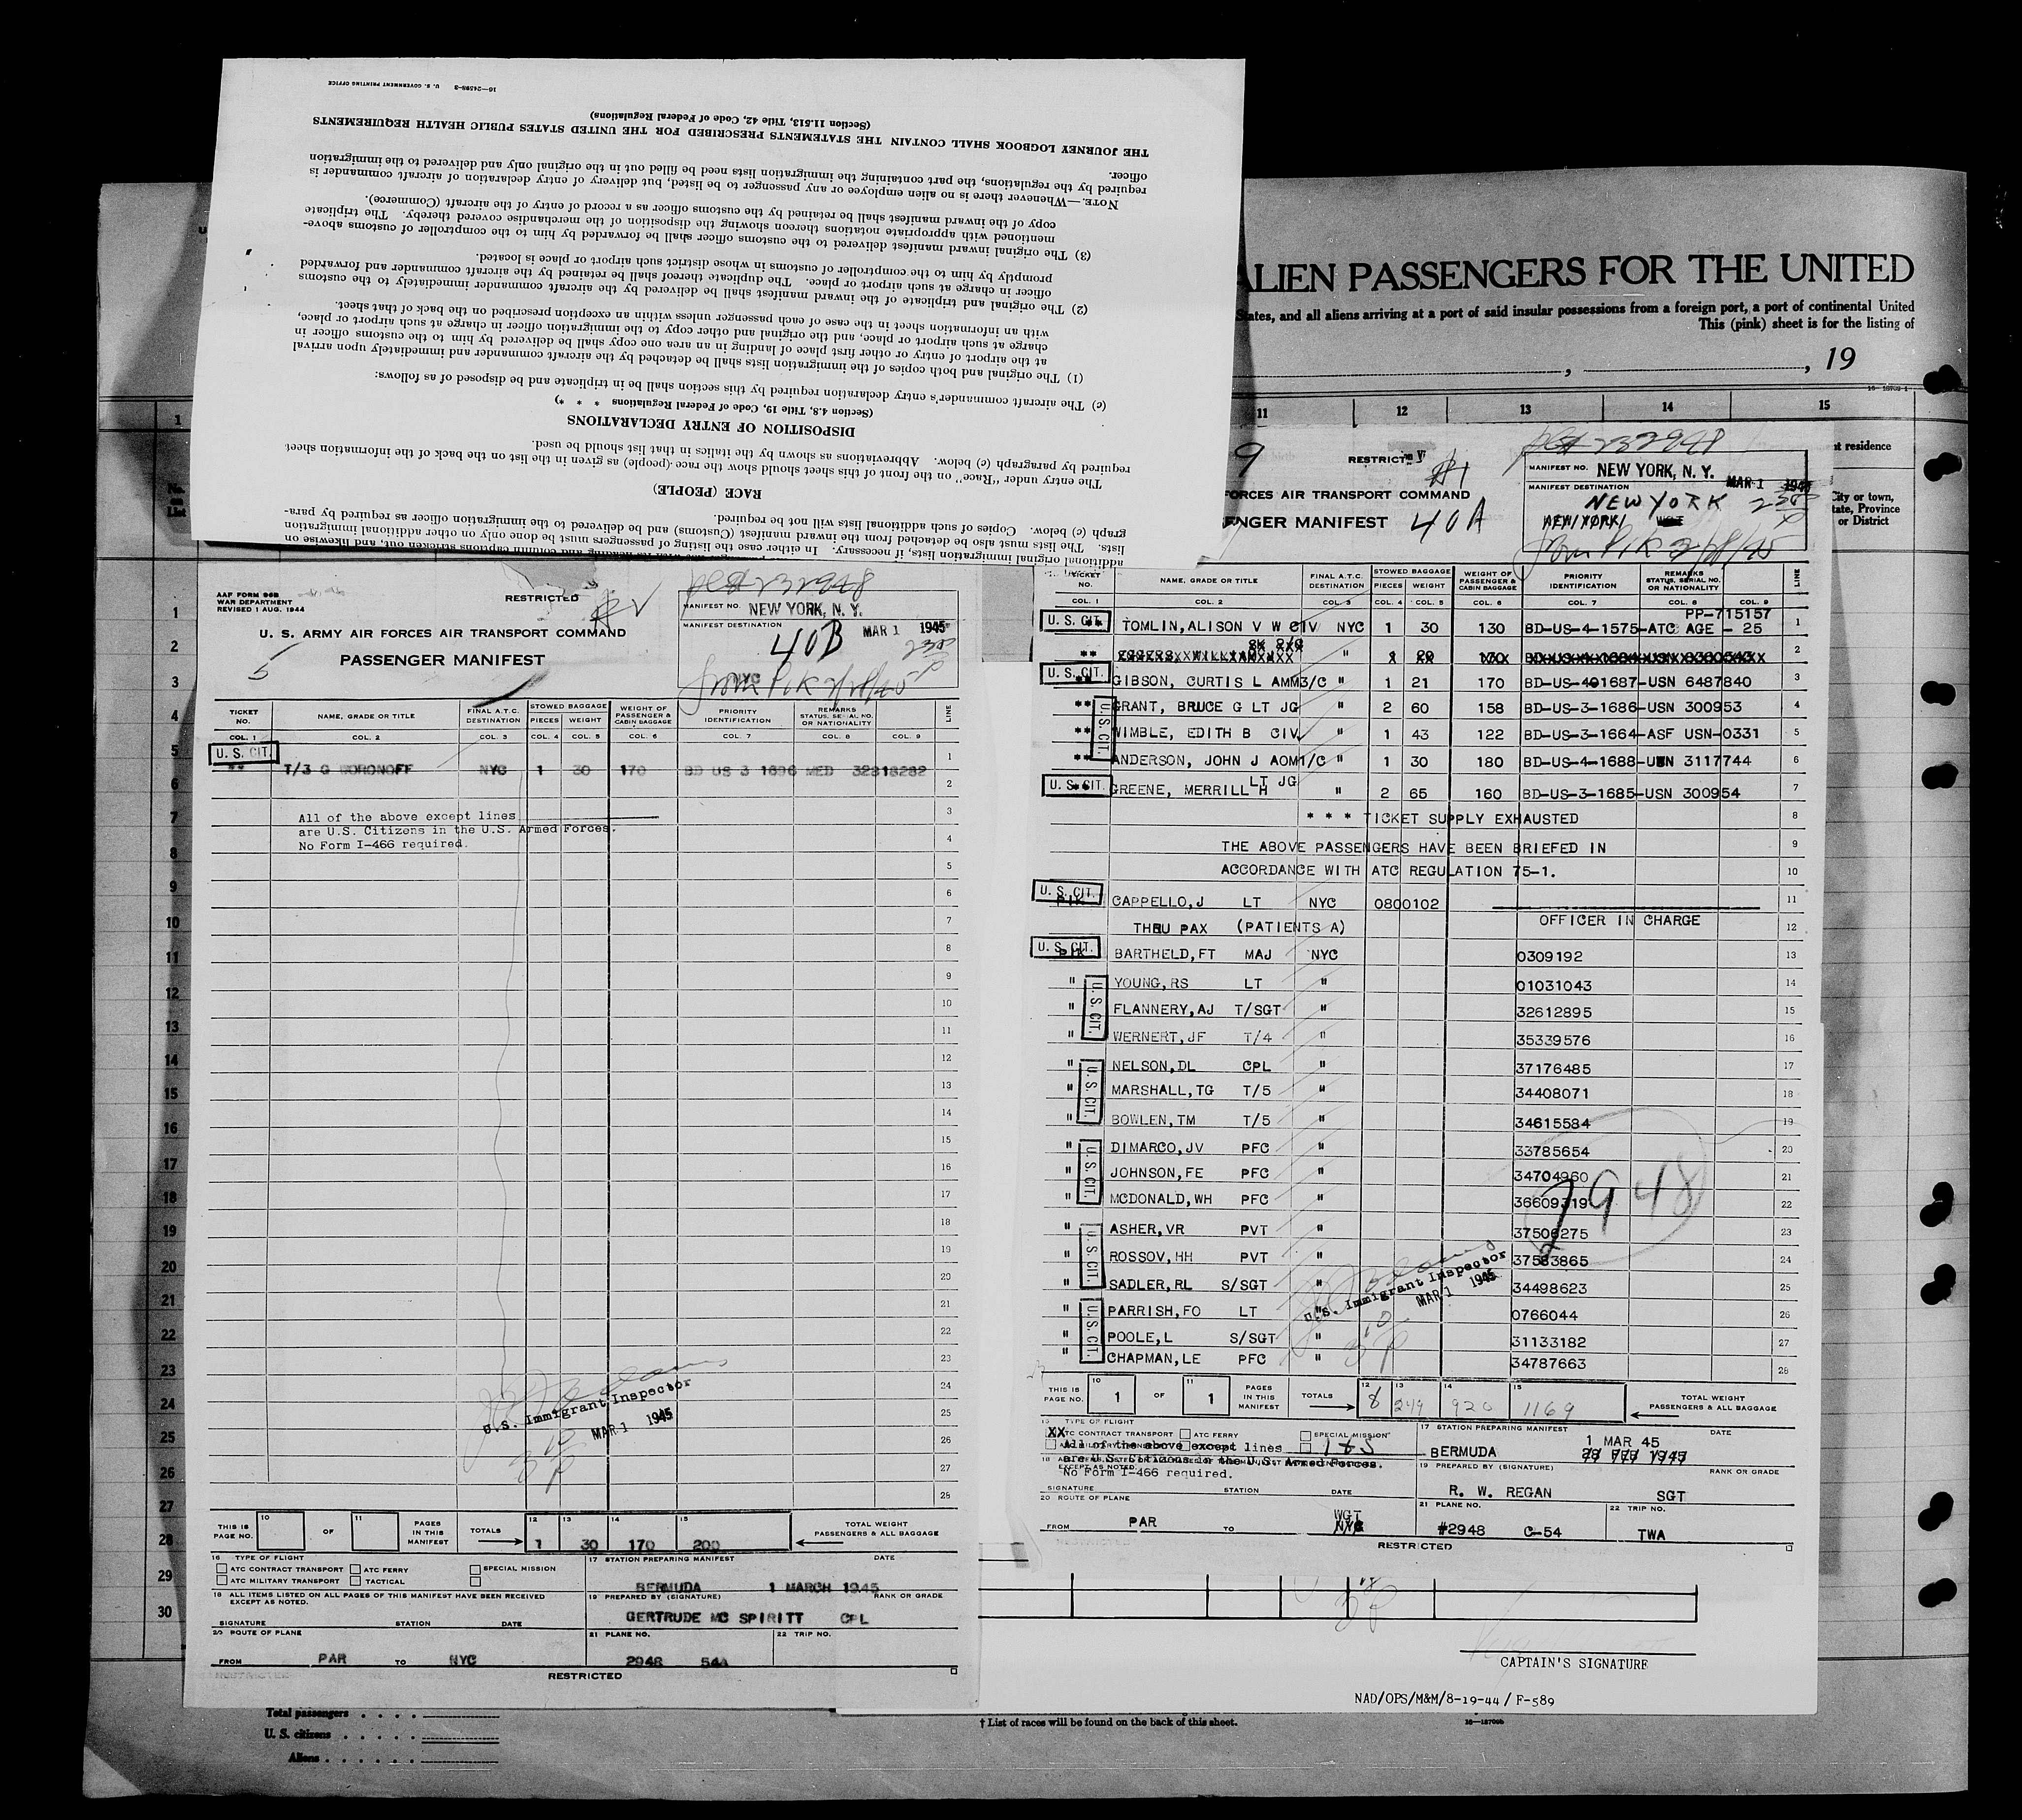 16—24598-3 U. S. GOVERNMENT PRINTING OFFICE
(Section 11.513, Title 42, Code of Federal Regulations)
THE JOURNEY LOGBOOK SHALL CONTAIN THE STATEMENTS PRESCRIBED FOR THE UNITED STATES PUBLIC HEALTH REQUIREMENTS
officer.
required by the regulations, the part containing the immigration lists need be filled out in the original only and delivered to the immigration
NOTE.—Whenever there is no alien employee or any passenger to be listed, but delivery of entry declaration of aircraft commander is
copy of the inward manifest shall be retained by the customs officer as a record of entry of the aircraft (Commerce).
mentioned with appropriate notations thereon showing the disposition of the merchandise covered thereby. The triplicate
(3) The original inward manifest delivered to the customs officer shall be forwarded by him to the comptroller of customs above-
promptly by him to the comptroller of customs in whose district such airport or place is located.
officer in charge at such airport or place. The duplicate thereof shall be retained by the aircraft commander and forwarded
(2) The original and triplicate of the inward manifest shall be delivered by the aircraft commander immediately to the customs
with an information sheet in the case of each passenger unless within an exception prescribed on the back of that sheet.
charge at such airport or place, and the original and other copy to the immigration officer in charge at such airport or place,
at the airport of entry or other first place of landing in an area one copy shall be delivered by him to the customs officer in
(1) The original and both copies of the immigration lists shall be detached by the aircraft commander and immediately upon arrival
(c) The aircraft commander's entry declaration required by this section shall be in triplicate and be disposed of as follows:
(Section 4.8, Title 19, Code of Federal Regulations * * *)
DISPOSITION OF ENTRY DECLARATIONS
required by paragraph (c) below. Abbreviations as shown by the italics in that list should be used.
The entry under "Race" on the front of this sheet should show the race (people) as given in the list on the back of the information sheet
RACE (PEOPLE)
graph (c) below. Copies of such additional lists will not be required.
lists. The lists must also be detached from the inward manifest (Customs) and be delivered to the immigration officer as required by para-
additional original immigration lists, if necessary. In either case the listing of passengers must be done only on other additional immigration
ALIEN PASSENGERS FOR THE UNITED
States, and all aliens arriving at a port of said insular possessions from a foreign port, a port of continental United
This (pink) sheet is for the listing of
, , 19
11 12 13 14 15
residence
City or town,
State, Province
or District
1
No.
List
1
2
3
4
5
6
7
8
9
10
11
12
13
14
15
16
17
18
19
20
21
22
23
24
25
26
27
28
29
30
AAF FORM 96B
WAR DEPARTMENT
REVISED 1 AUG. 1944
RESTRICTED
U. S. ARMY AIR FORCES AIR TRANSPORT COMMAND
PASSENGER MANIFEST
5
MANIFEST NO. NEW YORK, N. Y.
MANIFEST DESTINATION MAR 1 1945
40B
230
NYC
from PIK 2/28/45
TICKET NO. NAME, GRADE OR TITLE FINAL A.T.C. DESTINATION STOWED BAGGAGE PIECES WEIGHT WEIGHT OF PASSENGER & CABIN BAGGAGE PRIORITY IDENTIFICATION REMARKS STATUS, SERIAL NO. OR NATIONALITY LINE
COL. 1 COL. 2 COL. 3 COL. 4 COL. 5 COL. 6 COL. 7 COL. 8 COL. 9
U. S. CIT.
** T/3 G WORONOFF NYC 1 30 170 BD US 3 1696 MED 32818282 1
2
All of the above except lines 3
are U.S. Citizens in the U.S. Armed Forces.
No Form I-466 required. 4
5
6
7
8
9
10
11
12
13
14
15
16
17
18
19
20
21
22
23
24
25
26
27
28
U.S. Immigrant Inspector
MAR 1 1945
THIS IS PAGE NO. 10 OF 11 PAGES IN THIS MANIFEST TOTALS 12 1 13 30 14 170 15 200 TOTAL WEIGHT PASSENGERS & ALL BAGGAGE
16 TYPE OF FLIGHT
ATC CONTRACT TRANSPORT ATC FERRY SPECIAL MISSION
ATC MILITARY TRANSPORT TACTICAL
17 STATION PREPARING MANIFEST DATE
BERMUDA 1 MARCH 1945
18 ALL ITEMS LISTED ON ALL PAGES OF THIS MANIFEST HAVE BEEN RECEIVED
EXCEPT AS NOTED.
19 PREPARED BY (SIGNATURE) RANK OR GRADE
GERTRUDE MC SPIRITT CPL
SIGNATURE STATION DATE
20 ROUTE OF PLANE
FROM PAR TO NYC
21 PLANE NO. 22 TRIP NO.
2948 54A
RESTRICTED
9
RESTRICTED
FORCES AIR TRANSPORT COMMAND
PASSENGER MANIFEST 40A
MANIFEST NO. NEW YORK, N. Y.
MANIFEST DESTINATION MAR 1 1945
NEW YORK 230
from PIK 2/28/45
TICKET NO. NAME, GRADE OR TITLE FINAL A.T.C. DESTINATION STOWED BAGGAGE PIECES WEIGHT WEIGHT OF PASSENGER & CABIN BAGGAGE PRIORITY IDENTIFICATION REMARKS STATUS, SERIAL NO. OR NATIONALITY LINE
COL. 1 COL. 2 COL. 3 COL. 4 COL. 5 COL. 6 COL. 7 COL. 8 COL. 9
PP-715157
U. S. CIT. ** TOMLIN, ALISON V W CIV NYC 1 30 130 BD-US-4-1575-ATC AGE - 25 1
** 2
U. S. CIT. ** GIBSON, CURTIS L AMM3/C " 1 21 170 BD-US-4-1687-USN 6487840 3
** GRANT, BRUCE G LT JG " 2 60 158 BD-US-3-1686-USN 300953 4
U. S. CIT.
** WIMBLE, EDITH B CIV " 1 43 122 BD-US-3-1664-ASF USN-0331 5
** ANDERSON, JOHN J AOM1/C " 1 30 180 BD-US-4-1688-USN 3117744 6
U. S. CIT. ** GREENE, MERRILL H LT JG " 2 65 160 BD-US-3-1685-USN 300954 7
* * * TICKET SUPPLY EXHAUSTED 8
THE ABOVE PASSENGERS HAVE BEEN BRIEFED IN 9
ACCORDANCE WITH ATC REGULATION 75-1. 10
U. S. CIT. PIK CAPPELLO, J LT NYC 0800102 11
THRU PAX (PATIENTS A) OFFICER IN CHARGE 12
U. S. CIT. PIK BARTHELD, FT MAJ NYC 0309192 13
" YOUNG, RS LT " 01031043 14
U. S. CIT.
" FLANNERY, AJ T/SGT " 32612895 15
" WERNERT, JF T/4 " 35339576 16
" NELSON, DL CPL " 37176485 17
U. S. CIT.
" MARSHALL, TG T/5 " 34408071 18
" BOWLEN, TM T/5 " 34615584 19
" DIMARCO, JV PFC " 33785654 20
U. S. CIT.
" JOHNSON, FE PFC " 34704960 21
" MCDONALD, WH PFC " 36609319 22
2948
" ASHER, VR PVT " 37506275 23
U. S. CIT.
" ROSSOV, HH PVT " 37583865 24
" SADLER, RL S/SGT " 34498623 25
U.S. Immigrant Inspector
MAR 1 1945
" PARRISH, FO LT " 0766044 26
U. S. CIT.
" POOLE, L S/SGT " 31133182 27
" CHAPMAN, LE PFC " 34787663 28
THIS IS PAGE NO. 10 1 OF 11 1 PAGES IN THIS MANIFEST TOTALS 12 8 13 249 14 920 15 1169 TOTAL WEIGHT PASSENGERS & ALL BAGGAGE
TYPE OF FLIGHT
XX ATC CONTRACT TRANSPORT ATC FERRY SPECIAL MISSION
All of the above except lines 1 & 5
are U.S. Citizens in the U.S. Armed Forces.
No Form I-466 required.
17 STATION PREPARING MANIFEST DATE
BERMUDA 1 MAR 45
19 PREPARED BY (SIGNATURE) RANK OR GRADE
R. W. REGAN SGT
SIGNATURE STATION DATE
20 ROUTE OF PLANE
FROM PAR TO WGT
21 PLANE NO. 22 TRIP NO.
#2948 C-54 TWA
RESTRICTED
CAPTAIN'S SIGNATURE
NAD/OPS/M&M/8-19-44 / F-589
Total passengers . . . .
U. S. citizens . . . . .
Aliens . . . . . .
† List of races will be found on the back of this sheet.
16—18709b